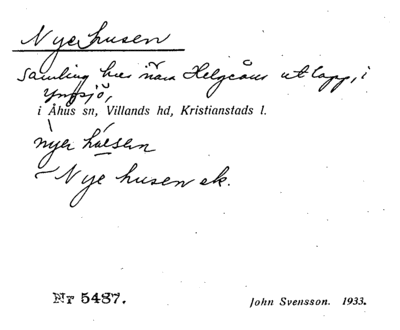 Nyehusen
Samling hus nära Helgeåns utlopp, i
Yngsjö,
i Åhus sn, Villands hd, Kristianstads l.
nyer húesen
~ Nye husen ek.
Nr 5487.
John Svensson. 1933.